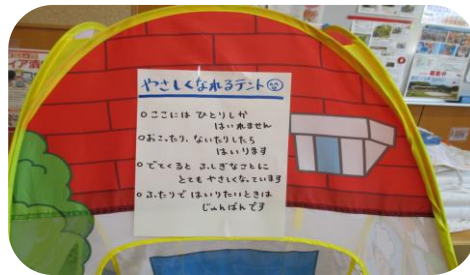 やさしくなれるテント
○ここには ひとりしか
はいれません
○おこったり、ないたりしたら
はいります
○でてくると ふしぎなことに
とても やさしくなっています
○ふたりで はいりたいときは
じゅんばんです